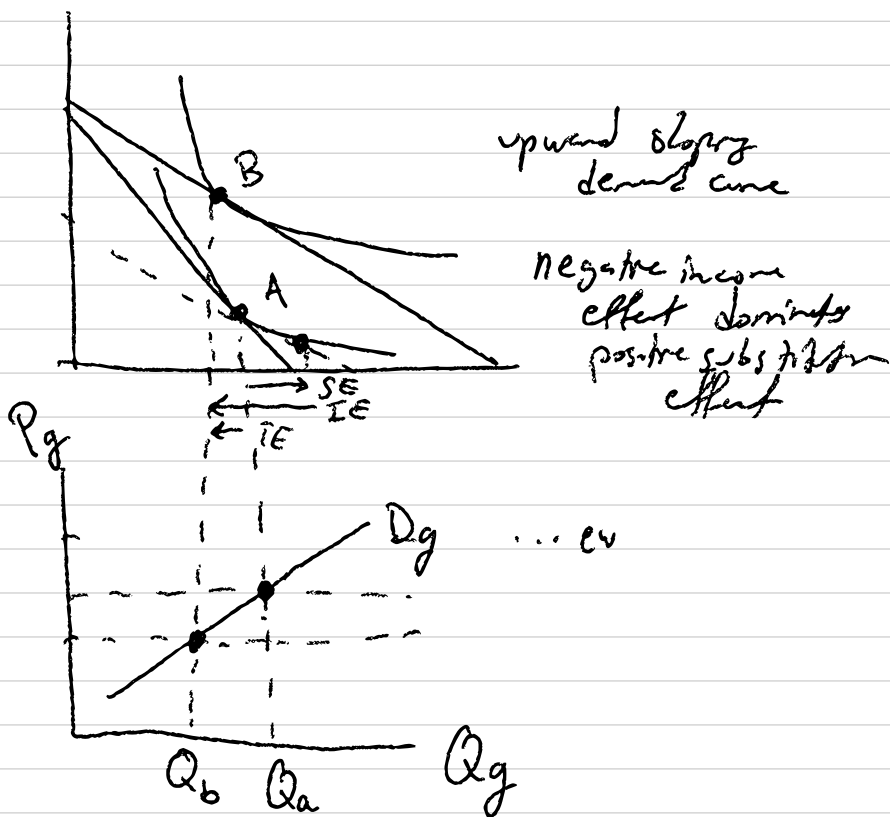 B
upward sloping
demand curve
A
negative income
effect dominates
positive substitution
effect
SE
IE
TE
Pg
Dg
...ew
Qb
Qa
Qg